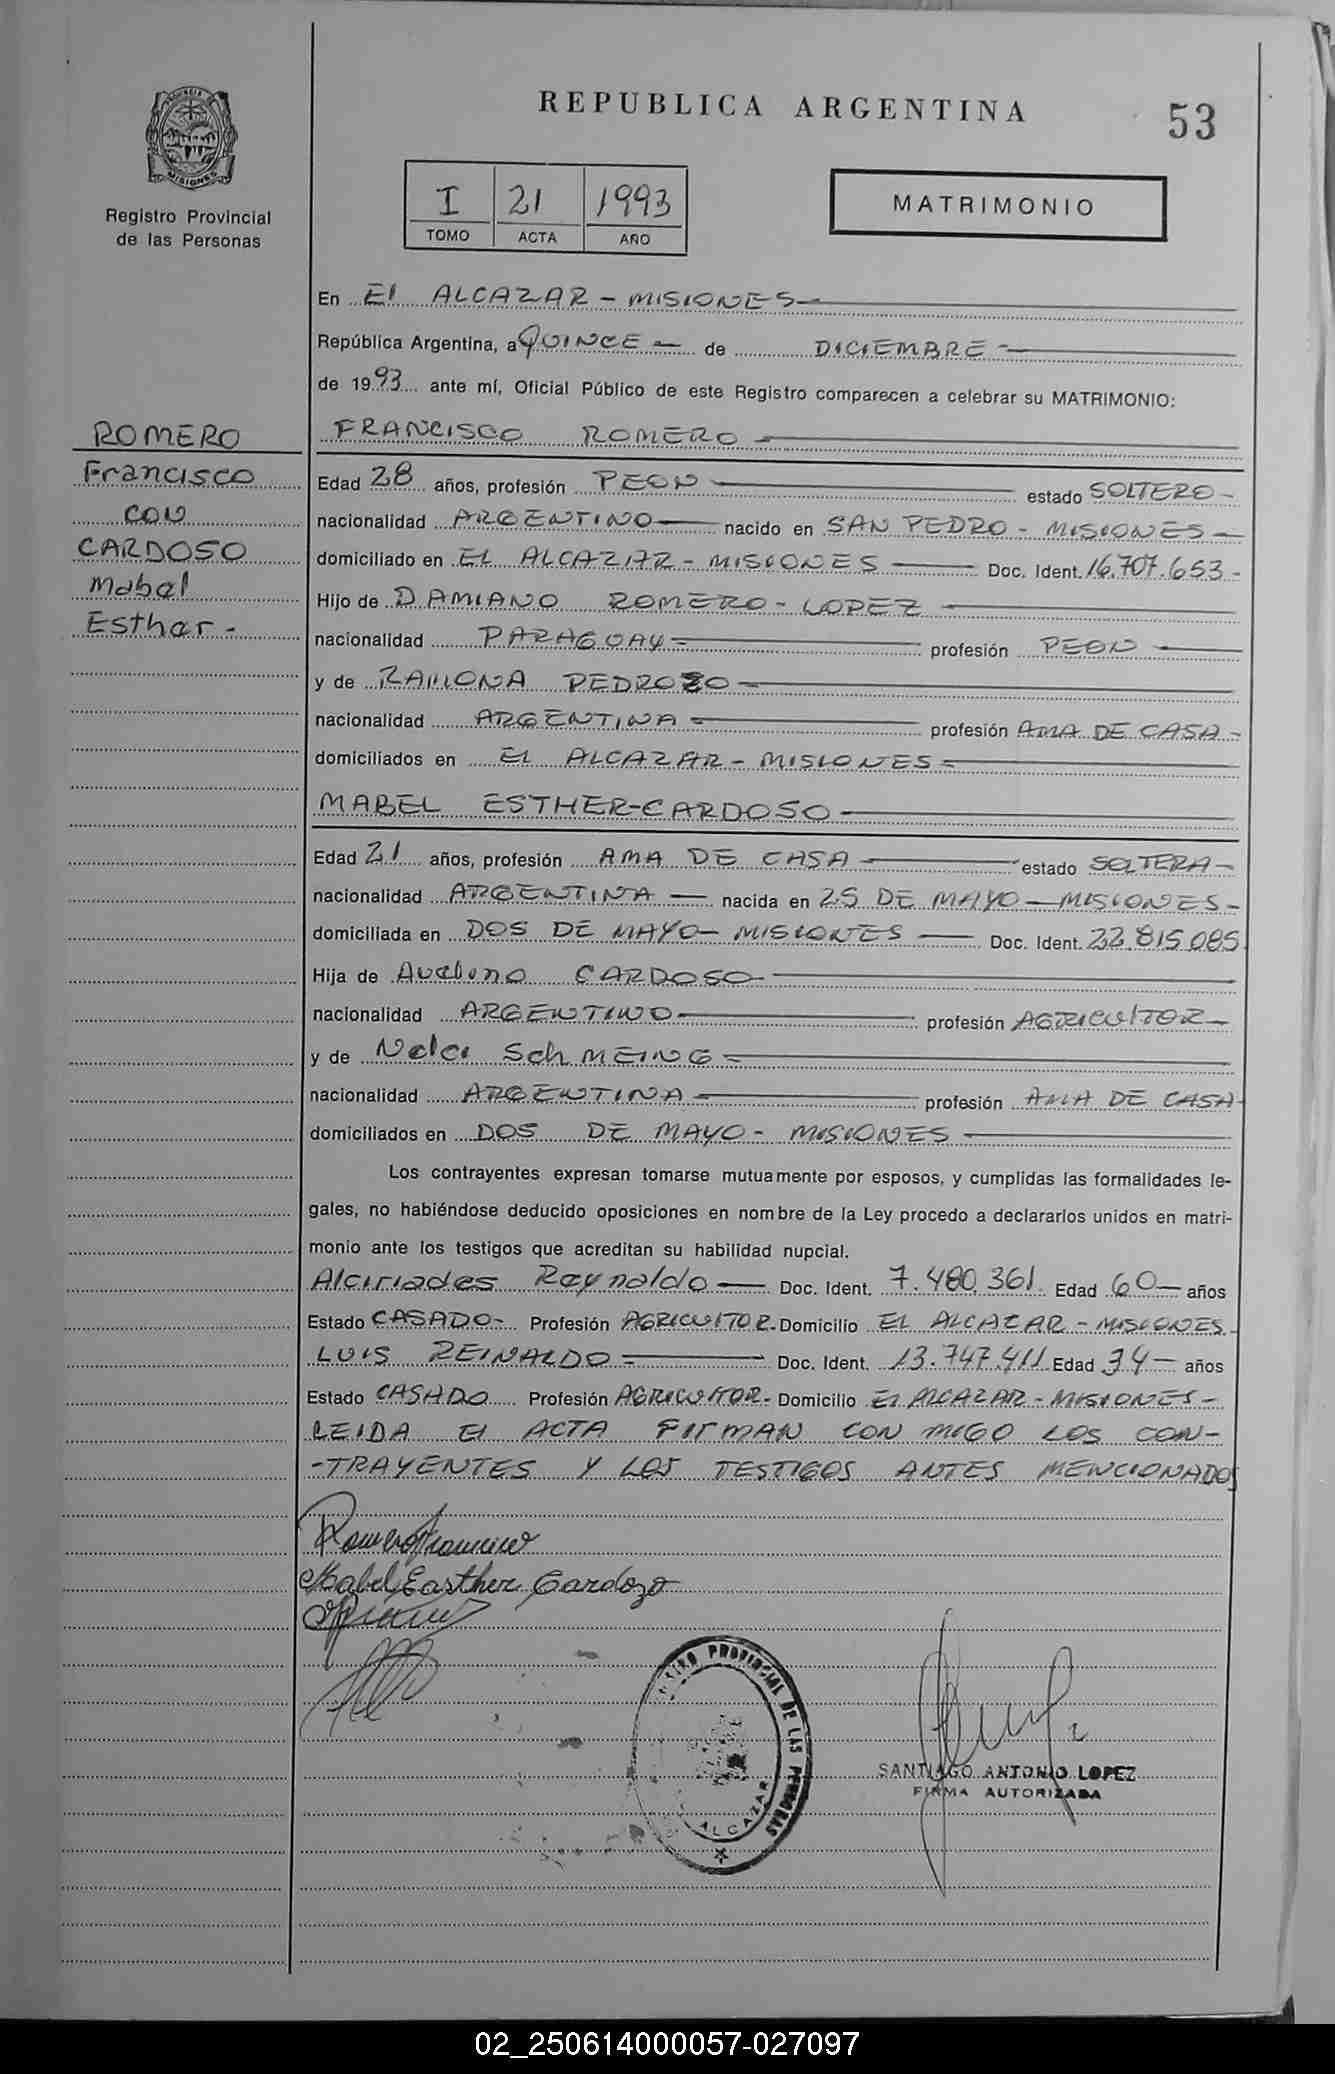 REPUBLICA ARGENTINA
53
PROVINCIA DE MISIONES
Registro Provincial
de las Personas
I 21 1993
TOMO ACTA AÑO
MATRIMONIO
En El ALCAZAR - MISIONES
República Argentina, a QUINCE de DICIEMBRE
de 1993 ante mí, Oficial Público de este Registro comparecen a celebrar su MATRIMONIO:
ROMERO
Francisco
con
CARDOSO
Mabel
Esther-
FRANCISCO ROMERO
Edad 28 años, profesión PEON estado SOLTERO-
nacionalidad ARGENTINO nacido en SAN PEDRO - MISIONES
domiciliado en EL ALCAZAR - MISIONES Doc. Ident. 16.707.653-
Hijo de DAMIANO ROMERO-LOPEZ
nacionalidad PARAGUAY profesión PEON
y de RAMONA PEDROZO
nacionalidad ARGENTINA profesión AMA DE CASA-
domiciliados en EL ALCAZAR - MISIONES
MABEL ESTHER-CARDOSO
Edad 21 años, profesión AMA DE CASA estado SOLTERA-
nacionalidad ARGENTINA nacida en 25 DE MAYO - MISIONES-
domiciliada en DOS DE MAYO - MISIONES Doc. Ident. 22.815.085
Hija de Avelino CARDOSO
nacionalidad ARGENTINO profesión AGRICUlTOR-
y de Nelci SchMEING
nacionalidad ARGENTINA profesión AMA DE CASA-
domiciliados en DOS DE MAYO - MISIONES
Los contrayentes expresan tomarse mutuamente por esposos, y cumplidas las formalidades le-
gales, no habiéndose deducido oposiciones en nombre de la Ley procedo a declararlos unidos en matri-
monio ante los testigos que acreditan su habilidad nupcial.
Alciriades Reynaldo Doc. Ident. 7.480.361 Edad 60 años
Estado CASADO- Profesión AGRICUlTOR- Domicilio EL ALCAZAR - MISIONES-
LUIS REINALDO Doc. Ident. 13.747.411 Edad 34 años
Estado CASADO Profesión AGRICUlTOR- Domicilio El ALCAZAR - MISIONES-
LEIDA El ACTA FIRMAN CON MIGO LOS CON-
-TRAYENTES Y LOS TESTIGOS ANTES MENCIONADOS
Romero Francisco
Mabel Easther Cardozo
REGISTRO PROVINCIAL DE LAS PERSONAS
ALCAZAR
SANTIAGO ANTONIO LOPEZ
FIRMA AUTORIZADA
02_250614000057-027097